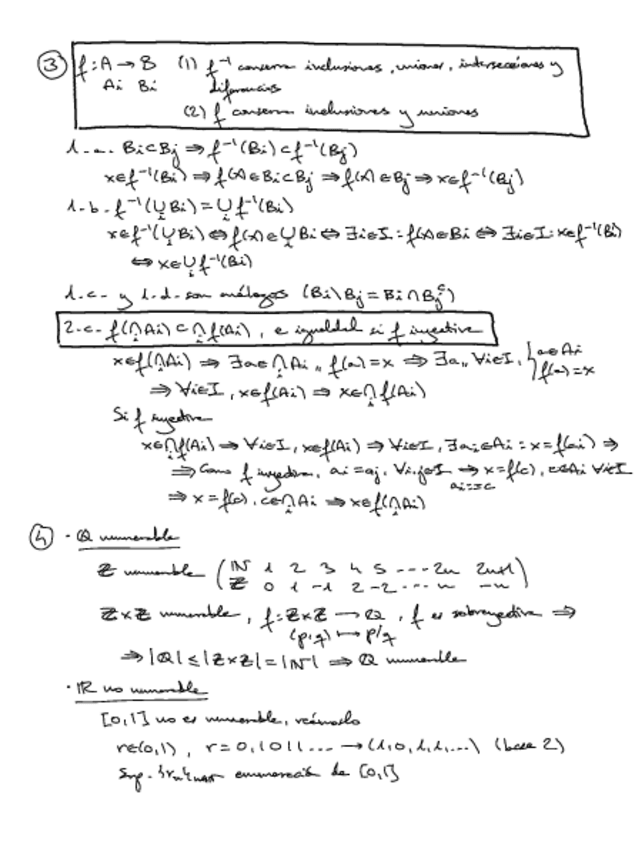 ③ f: A → B (1) f⁻¹ conserva inclusiones, uniones, intersecciones y
Ai Bi diferencias
(2) f conserva inclusiones y uniones
1-a- Bi⊂Bj ⇒ f⁻¹(Bi)⊂f⁻¹(Bj)
x∈f⁻¹(Bi) ⇒ f(x)∈Bi⊂Bj ⇒ f(x)∈Bj ⇒ x∈f⁻¹(Bj)
1-b- f⁻¹(⋃ᵢBi) = ⋃ᵢf⁻¹(Bi)
x∈f⁻¹(⋃ᵢBi) ⇔ f(x)∈⋃ᵢBi ⇔ ∃i∈I: f(x)∈Bi ⇔ ∃i∈I: x∈f⁻¹(Bi)
⇔ x∈⋃ᵢf⁻¹(Bi)
1.c- y 1.d- son análogos (Bi\Bj = Bi∩Bjᶜ)
2-c- f(⋂ᵢAi) ⊂ ⋂ᵢf(Ai), e igualdad si f inyectiva
x∈f(⋂ᵢAi) ⇒ ∃a∈⋂ᵢAi,, f(a)=x ⇒ ∃a,, ∀i∈I, { a∈Ai
f(a)=x
⇒ ∀i∈I, x∈f(Ai) ⇒ x∈⋂ᵢf(Ai)
Si f inyectiva
x∈⋂ᵢf(Ai) ⇒ ∀i∈I, x∈f(Ai) ⇒ ∀i∈I, ∃ai∈Ai : x=f(ai) ⇒
⇒ Como f inyectiva, ai=aj, ∀i,j∈I ⇒ x=f(c), c∈Ai ∀i∈I
ai=:c
⇒ x=f(c), c∈⋂ᵢAi ⇒ x∈f(⋂ᵢAi)
④ · ℚ numerable
ℤ numerable ( ℕ 1 2 3 4 5 ---- 2n 2n+1 )
ℤ 0 1 -1 2 -2 --- n -n
ℤ×ℤ numerable, f: ℤ×ℤ → ℚ, f es sobreyectiva ⇒
(p,q) ↦ p/q
⇒ |ℚ| ≤ |ℤ×ℤ| = |ℕ| ⇒ ℚ numerable
· ℝ no numerable
[0,1] no es numerable, veámoslo
r∈(0,1), r=0,1011... → (1,0,1,1,...) (base 2)
Sup. {rn}n∈ℕ enumeración de [0,1]